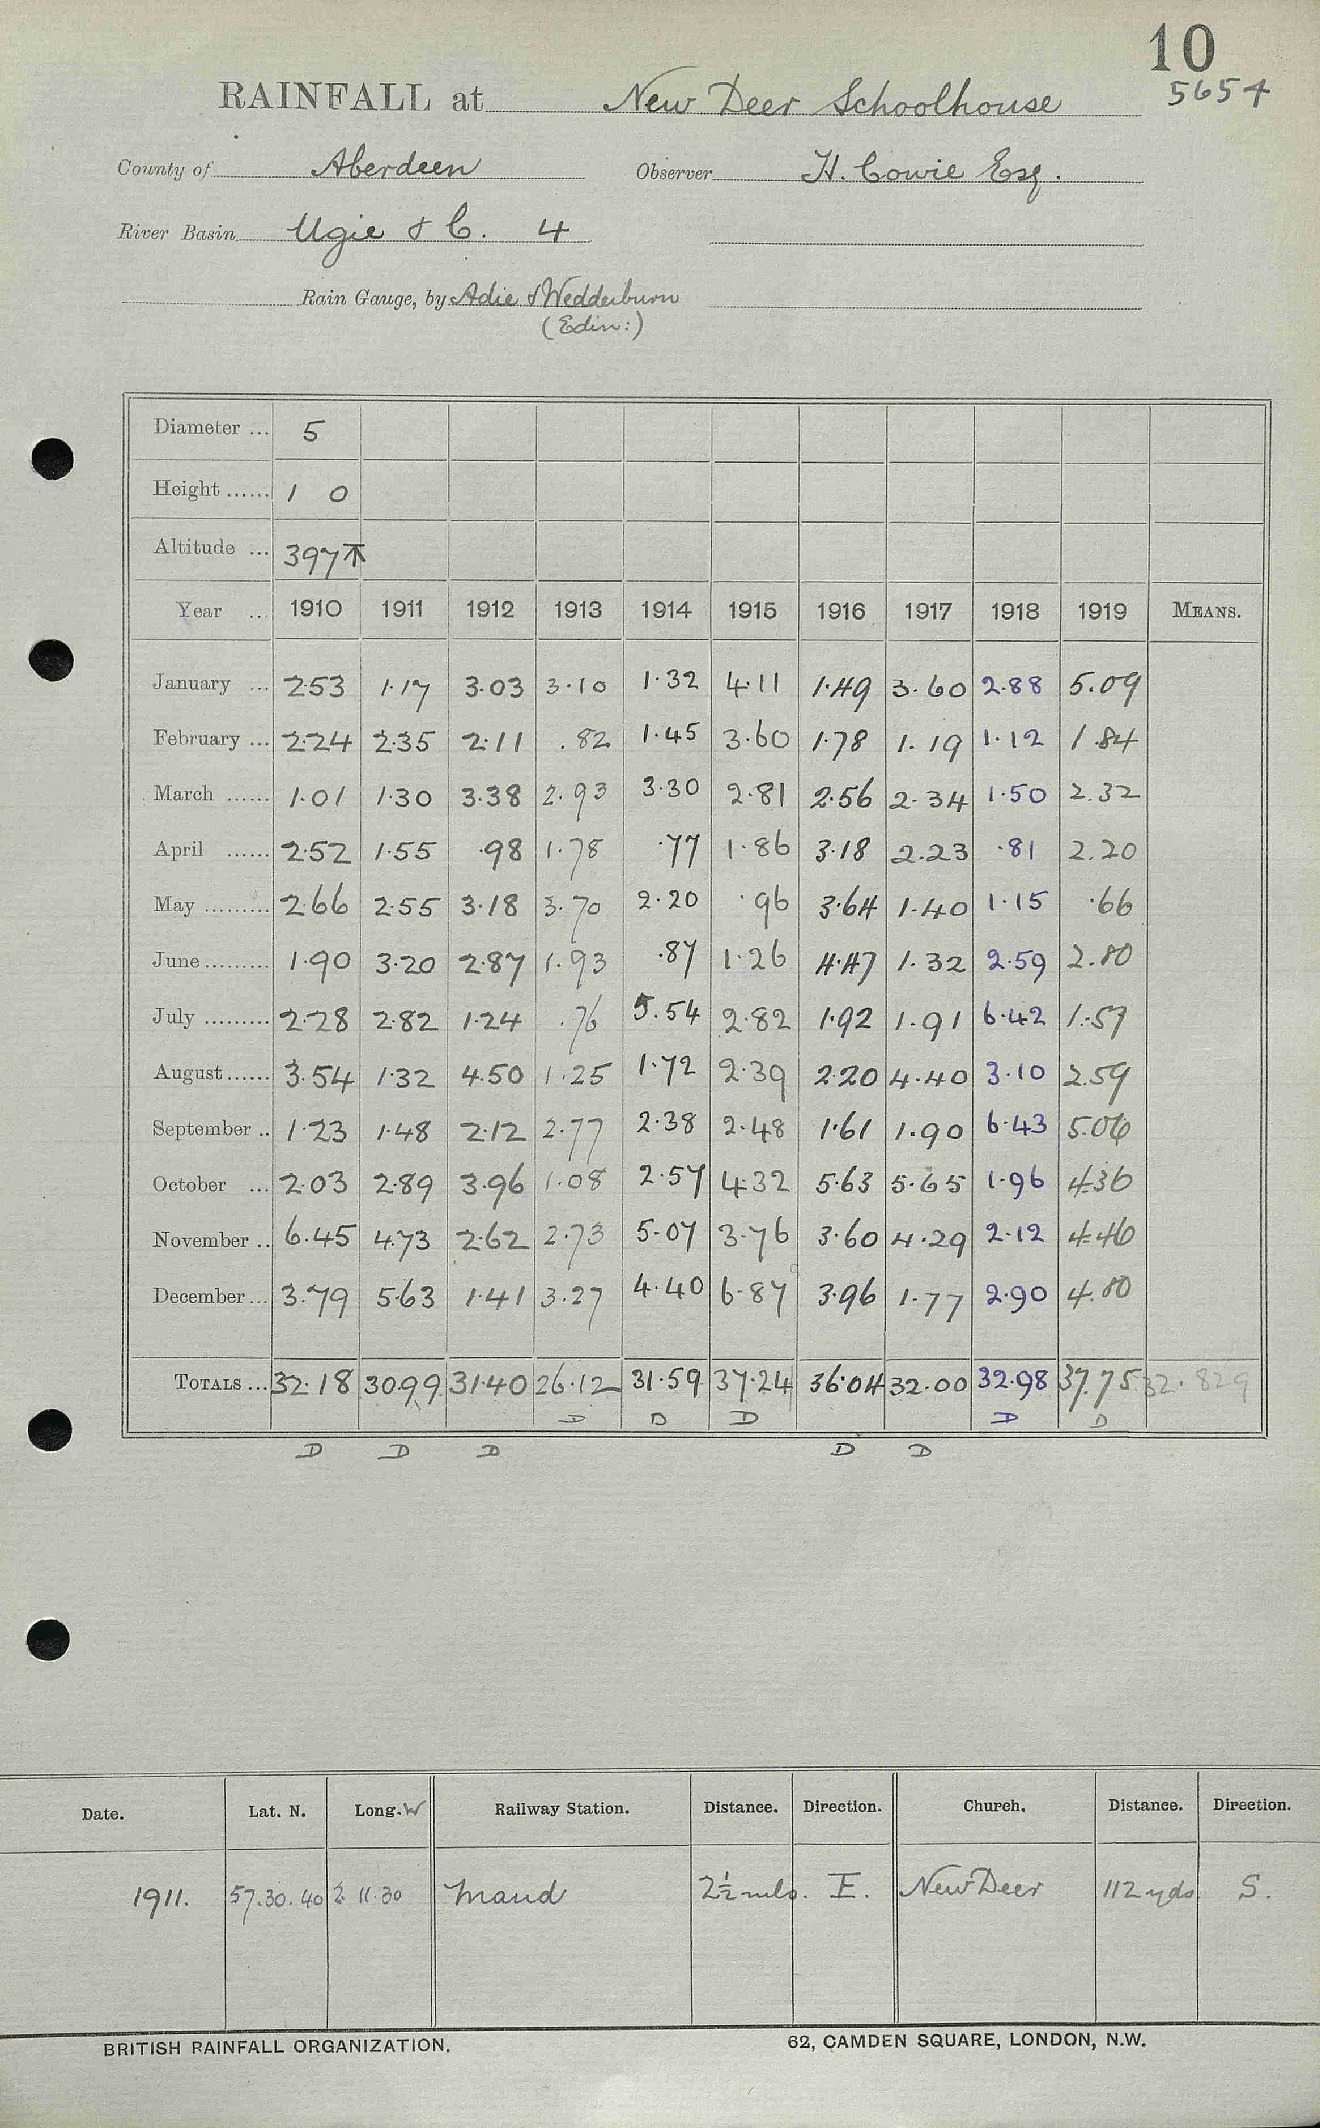 10
RAINFALL at New Deer Schoolhouse 5654
County of Aberdeen Observer H. Cowie Esq.
River Basin Ugie & C. 4
Rain Gauge, by Adie & Wedderburn
(Edin:)
Diameter ... 5
Height ...... 1 0
Altitude ... 397 ⊼
Year ... 1910 1911 1912 1913 1914 1915 1916 1917 1918 1919 MEANS.
January ... 2.53 1.17 3.03 3.10 1.32 4.11 1.49 3.60 2.88 5.09
February ... 2.24 2.35 2.11 .82 1.45 3.60 1.78 1.19 1.12 1.84
March ...... 1.01 1.30 3.38 2.93 3.30 2.81 2.56 2.34 1.50 2.32
April ...... 2.52 1.55 .98 1.78 .77 1.86 3.18 2.23 .81 2.20
May ......... 2.66 2.55 3.18 3.70 2.20 .96 3.64 1.40 1.15 .66
June ......... 1.90 3.20 2.87 1.93 .87 1.26 4.47 1.32 2.59 2.80
July ......... 2.28 2.82 1.24 .76 5.54 2.82 1.92 1.91 6.42 1.57
August ...... 3.54 1.32 4.50 1.25 1.72 2.39 2.20 4.40 3.10 2.59
September .. 1.23 1.48 2.12 2.77 2.38 2.48 1.61 1.90 6.43 5.06
October ... 2.03 2.89 3.96 1.08 2.57 4.32 5.63 5.65 1.96 4.36
November .. 6.45 4.73 2.62 2.73 5.07 3.76 3.60 4.29 2.12 4.46
December ... 3.79 5.63 1.41 3.27 4.40 6.87 3.96 1.77 2.90 4.80
TOTALS ... 32.18 30.99 31.40 26.12 31.59 37.24 36.04 32.00 32.98 37.75 32.829
D D D D D
D D D D D
Date. Lat. N. Long. W Railway Station. Distance. Direction. Church. Distance. Direction.
1911. 57.30.40 2 11.30 Maud 2½ mls. E. New Deer 112 yds. S.
BRITISH RAINFALL ORGANIZATION. 62, CAMDEN SQUARE, LONDON, N.W.